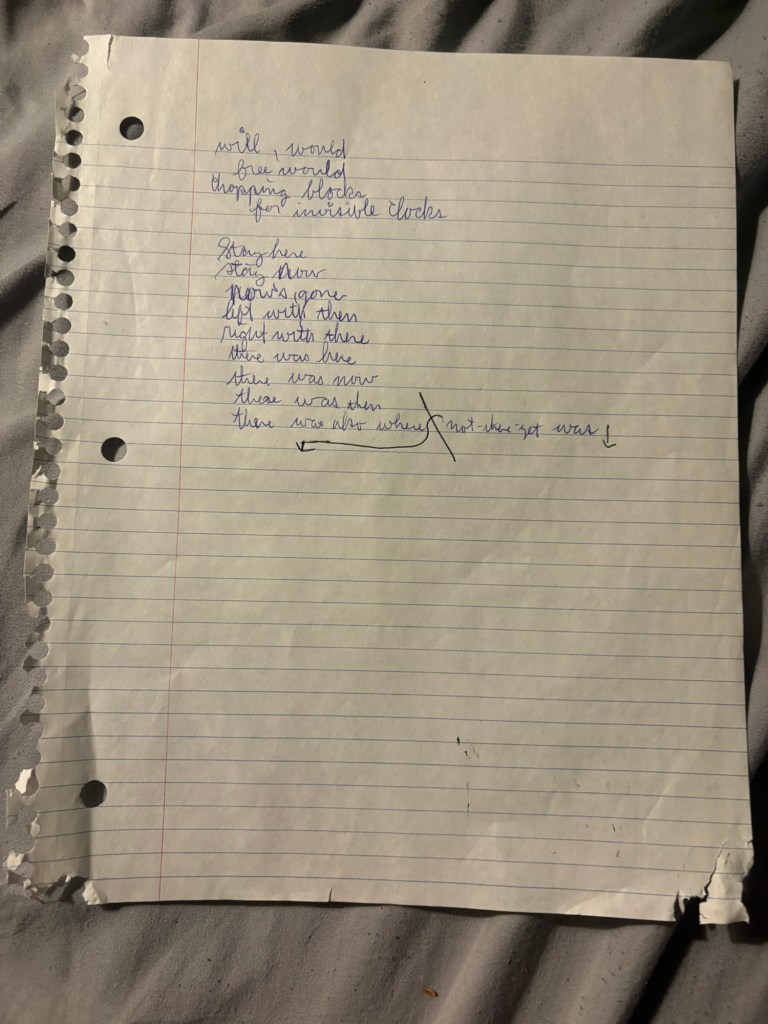 will, would
free would
Chopping blocks
for invisible clocks
Stay here
stay now
now's gone
left with then
right with there
there was here
there was now
there was then
there was also where not-there-yet was